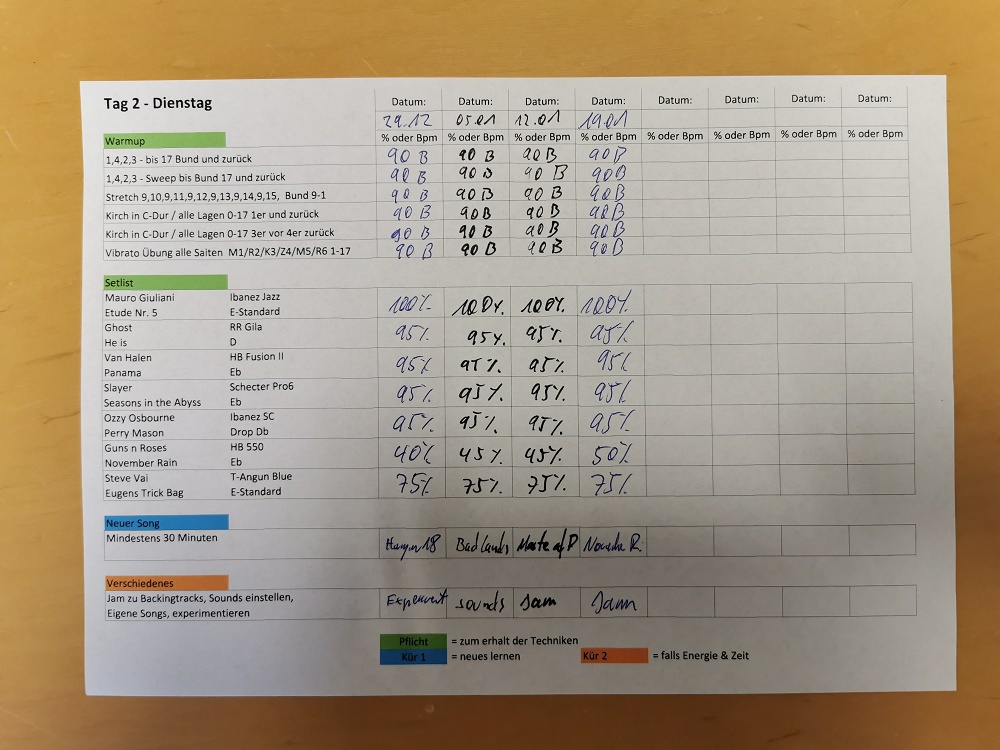 Tag 2 - Dienstag
Datum: Datum: Datum: Datum: Datum: Datum: Datum: Datum:
29.12 05.01 12.01 19.01
Warmup % oder Bpm % oder Bpm % oder Bpm % oder Bpm % oder Bpm % oder Bpm % oder Bpm % oder Bpm
1,4,2,3 - bis 17 Bund und zurück 90 B 90 B 90 B 90 B
1,4,2,3 - Sweep bis Bund 17 und zurück 90 B 90 B 90 B 90 B
Stretch 9,10,9,11,9,12,9,13,9,14,9,15, Bund 9-1 90 B 90 B 90 B 90 B
Kirch in C-Dur / alle Lagen 0-17 1er und zurück 90 B 90 B 90 B 90 B
Kirch in C-Dur / alle Lagen 0-17 3er vor 4er zurück 90 B 90 B 90 B 90 B
Vibrato Übung alle Saiten M1/R2/K3/Z4/M5/R6 1-17 90 B 90 B 90 B 90 B
Setlist
Mauro Giuliani Ibanez Jazz 100% 100% 100% 100%
Etude Nr. 5 E-Standard
Ghost RR Gila 95% 95% 95% 95%
He is D
Van Halen HB Fusion II 95% 95% 95% 95%
Panama Eb
Slayer Schecter Pro6 95% 95% 95% 95%
Seasons in the Abyss Eb
Ozzy Osbourne Ibanez SC 95% 95% 95% 95%
Perry Mason Drop Db
Guns n Roses HB 550 40% 45% 45% 50%
November Rain Eb
Steve Vai T-Angun Blue 75% 75% 75% 75%
Eugens Trick Bag E-Standard
Neuer Song
Mindestens 30 Minuten 18 Badlands of P R.
Verschiedenes
Jam zu Backingtracks, Sounds einstellen, Experiment sounds Jam Jam
Eigene Songs, experimentieren
Pflicht = zum erhalt der Techniken
Kür 1 = neues lernen Kür 2 = falls Energie & Zeit